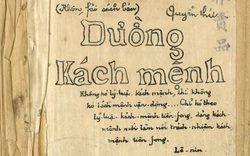 Quyển thứ
Đường
Kách mệnh
Không có lý luận kách mệnh, thì không
có kách mệnh vận động.... Chỉ có theo
lý luận kách mệnh tiền fong, đảng kách
mệnh mới làm nổi trách nhiệm kách
mệnh tiền fong.
Lê-nin